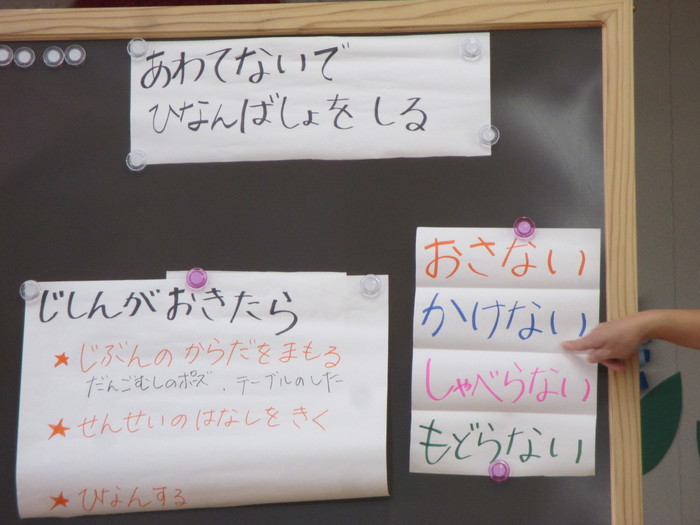 あわてないで
ひなんばしょをしる
じしんがおきたら
★じぶんのからだをまもる
だんごむしのポーズ、テーブルのした
★せんせいのはなしをきく
★ひなんする
おさない
かけない
しゃべらない
もどらない